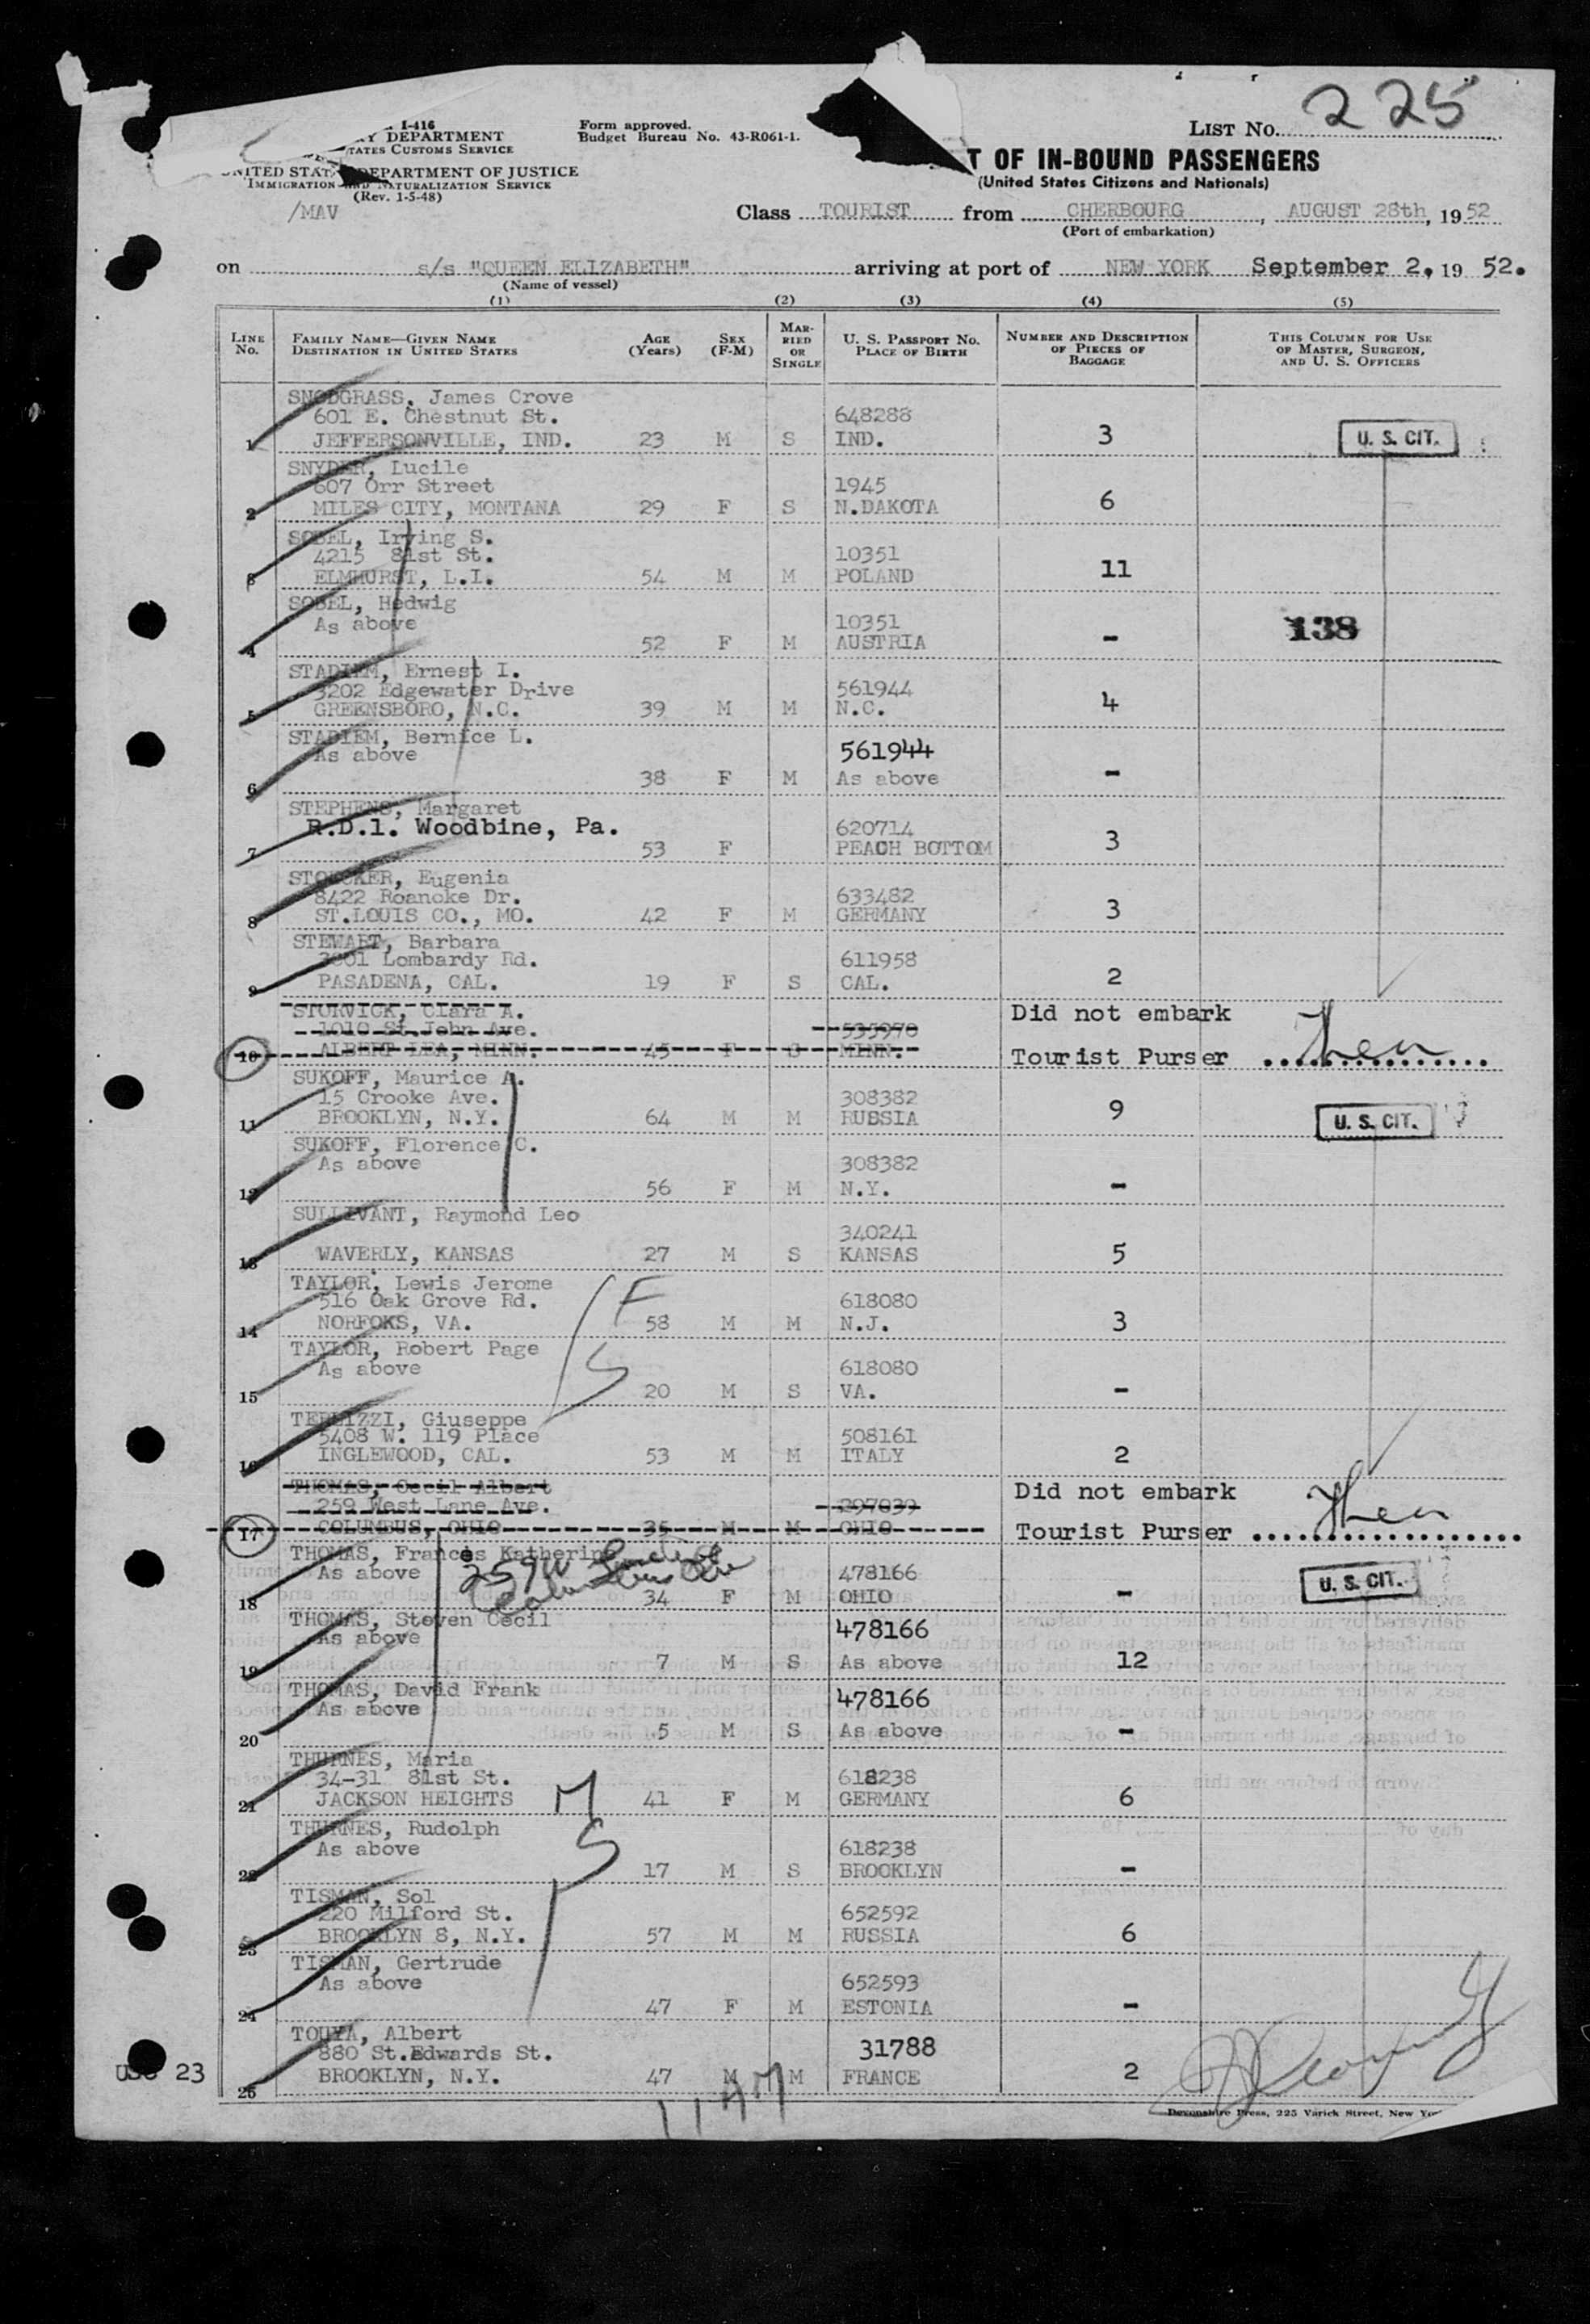 I-416
Y DEPARTMENT
TATES CUSTOMS SERVICE
UNITED STAT DEPARTMENT OF JUSTICE
IMMIGRATION AND NATURALIZATION SERVICE
(Rev. 1-5-48)
/MAV
Form approved.
Budget Bureau No. 43-R061-1.
LIST No. 225
T OF IN-BOUND PASSENGERS
(United States Citizens and Nationals)
Class TOURIST from CHERBOURG, AUGUST 28th, 1952
(Port of embarkation)
on s/s "QUEEN ELIZABETH" arriving at port of NEW YORK September 2, 1952.
(Name of vessel)
(1) (2) (3) (4) (5)
LINE No. FAMILY NAME—GIVEN NAME DESTINATION IN UNITED STATES AGE (Years) SEX (F-M) MARRIED OR SINGLE U. S. PASSPORT No. PLACE OF BIRTH NUMBER AND DESCRIPTION OF PIECES OF BAGGAGE THIS COLUMN FOR USE OF MASTER, SURGEON, AND U. S. OFFICERS
SNODGRASS, James Crove
601 E. Chestnut St. 648288
1 JEFFERSONVILLE, IND. 23 M S IND. 3 U. S. CIT.
SNYDER, Lucile
607 Orr Street 1945
2 MILES CITY, MONTANA 29 F S N.DAKOTA 6
SOBEL, Irving S.
4215 81st St. 10351
3 ELMHURST, L.I. 54 M M POLAND 11
SOBEL, Hedwig
As above 10351 138
4 52 F M AUSTRIA -
STADIEM, Ernest I.
3202 Edgewater Drive 561944
5 GREENSBORO, N.C. 39 M M N.C. 4
STADIEM, Bernice L.
As above 561944
6 38 F M As above -
STEPHENS, Margaret
R.D.1. Woodbine, Pa. 620714
7 53 F PEACH BOTTOM 3
STOECKER, Eugenia
8422 Roanoke Dr. 633482
8 ST.LOUIS CO., MO. 42 F M GERMANY 3
STEWART, Barbara
Lombardy Rd. 611958
9 PASADENA, CAL. 19 F S CAL. 2
STORVICK, Clara A. Did not embark
1010 St.John Ave. 535970
10 ALBERT LEA, MINN. 45 F S MINN. Tourist Purser
SUKOFF, Maurice A.
15 Crooke Ave. 308382
11 BROOKLYN, N.Y. 64 M M RUSSIA 9 U. S. CIT.
SUKOFF, Florence C.
As above 308382
12 56 F M N.Y. -
SULLIVANT, Raymond Leo
340241
13 WAVERLY, KANSAS 27 M S KANSAS 5
TAYLOR, Lewis Jerome F
516 Oak Grove Rd. 618080
14 NORFOKS, VA. 58 M M N.J. 3
TAYLOR, Robert Page
As above S 618080
15 20 M S VA. -
TERLIZZI, Giuseppe
5408 W. 119 Place 508161
16 INGLEWOOD, CAL. 53 M M ITALY 2
THOMAS, Cecil Albert Did not embark
259 West Lane Ave. 297039
17 COLUMBUS, OHIO 35 M M OHIO Tourist Purser
THOMAS, Frances Katherine
As above 259W 478166
18 Columbus 34 F M OHIO - U. S. CIT.
THOMAS, Steven Cecil
As above 478166
19 7 M S As above 12
THOMAS, David Frank
As above 478166
20 5 M S As above -
THURNES, Maria
34-31 81st St. M 618238
21 JACKSON HEIGHTS 41 F M GERMANY 6
THURNES, Rudolph S
As above 618238
22 17 M S BROOKLYN -
TISMAN, Sol
220 Milford St. 652592
23 BROOKLYN 8, N.Y. 57 M M RUSSIA 6
TISMAN, Gertrude
As above 652593
24 47 F M ESTONIA -
TOUYA, Albert
880 St.Edwards St. 31788
25 BROOKLYN, N.Y. 47 M M FRANCE 2
USC 23
Devonshire Press, 225 Varick Street, New Yo